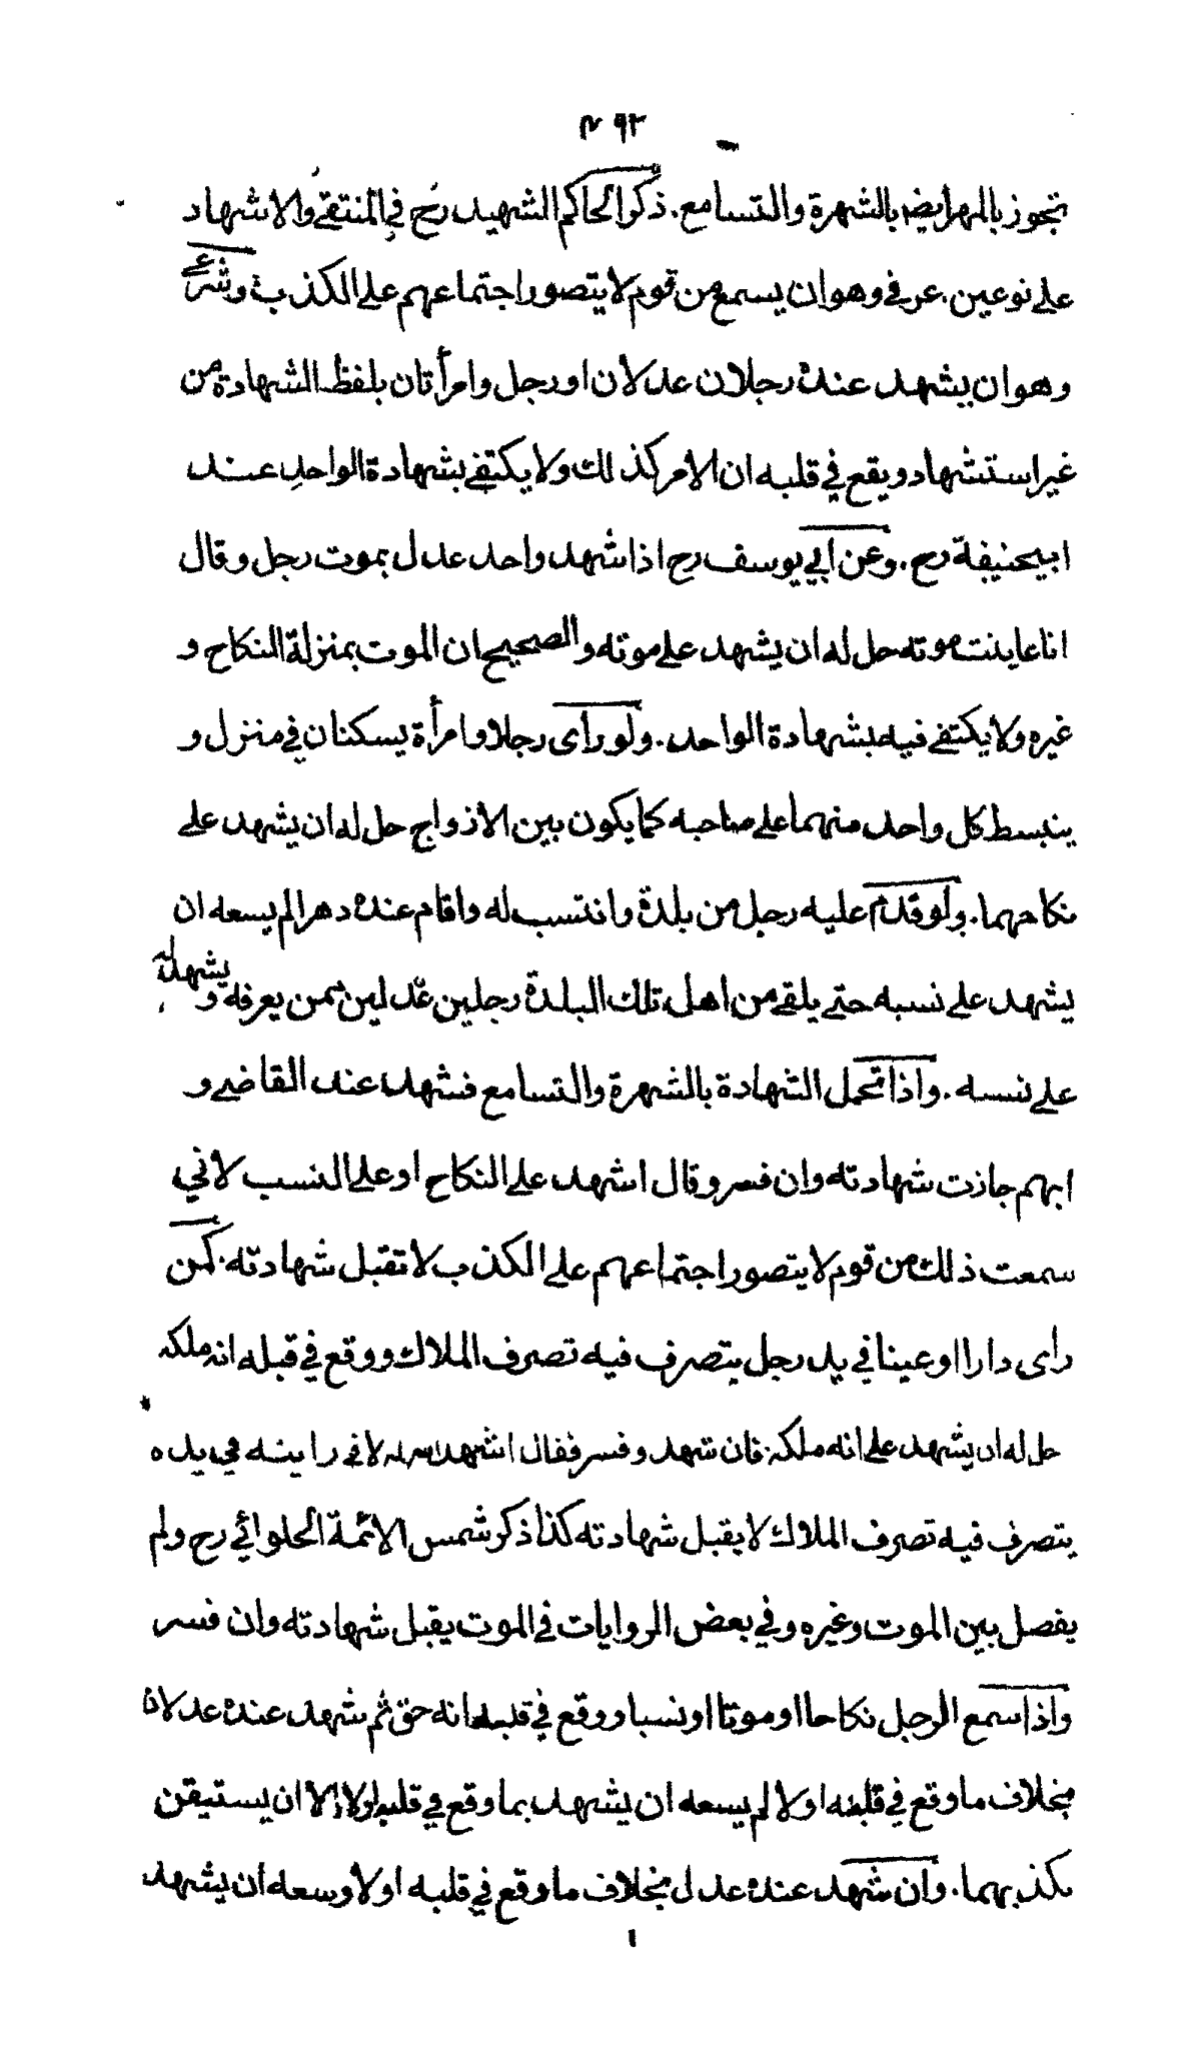 ٤٩٢
تجوز بالمهر ايضا بالشهرة والتسامع. ذكر الحاكم الشهيد رح في المنتقے والاشهاد
علے نوعين. عرفي وهو ان يسمع من قوم لا يتصور اجتماعهم علے الكذب وشرعے
وهو ان يشهد عنده رجلان عدلان او رجل وامرأتان بلفظ الشهادة من
غير استشهاد ويقع في قلبه ان الامر كذلك ولا يكتفے بشهادة الواحد عند
ابيحنيفة رح. وعن ابي يوسف رح اذا شهد واحد عدل بموت رجل وقال
انا عاينت موته حل له ان يشهد علے موته والصحيح ان الموت بمنزلة النكاح و
غيره ولا يكتفے فيه بشهادة الواحد. ولو رأى رجلا وامرأة يسكنان في منزل و
ينبسط كل واحد منهما علے صاحبه كما يكون بين الازواج حل له ان يشهد علے
نكاحهما. ولو قدم عليه رجل من بلدة وانتسب له واقام عنده دهرا لم يسعه ان
يشهد علے نسبه حتے يلقے من اهل تلك البلدة رجلين عدلين ممن يعرفه و يشهد له
علے نسبه. واذا تحمل الشهادة بالشهرة والتسامع فشهد عند القاضے و
ابهم جازت شهادته وان فسر وقال اشهد علے النكاح او علے النسب لاني
سمعت ذلك من قوم لا يتصور اجتماعهم علے الكذب لا تقبل شهادته. كمن
رأى دارا او عينا في يد رجل يتصرف فيه تصرف الملاك ووقع في قبله انه ملكه
حل له ان يشهد علے انه ملكه فان شهد و فسر فقال اشهد انه له لاني رايته في يده
يتصرف فيه تصرف الملاك لا يقبل شهادته كذا ذكر شمس الائمة الحلوائي رح ولم
يفصل بين الموت وغيره وفي بعض الروايات في الموت يقبل شهادته وان فسر
واذا سمع الرجل نكاحا او موتا او نسبا ووقع في قلبه انه حق ثم شهد عنده عدلان
بخلاف ما وقع في قلبه اولا لم يسعه ان يشهد بما وقع في قلبه اولا الا ان يستيقن
بكذبهما. وان شهد عنده عدل بخلاف ما وقع في قلبه اولا وسعه ان يشهد
١